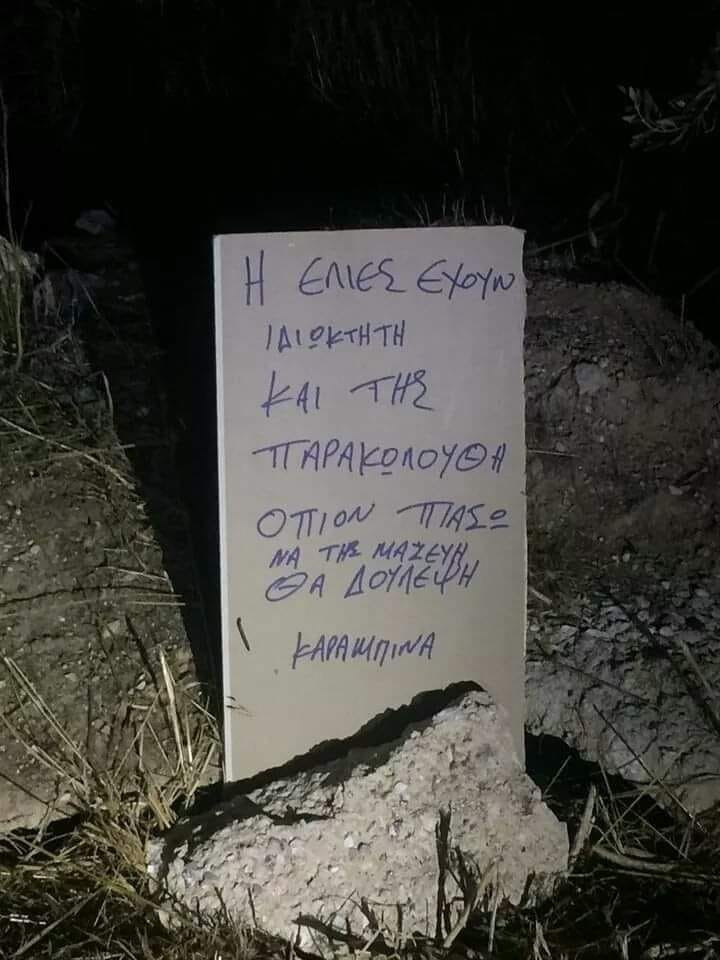 Η ΕΛΙΕΣ ΕΧΟΥΝ
ΙΔΙΩΚΤΗΤΗ
ΚΑΙ ΤΗΣ
ΠΑΡΑΚΩΛΟΥΘΑ
ΟΠΙΟΝ ΠΙΑΣΩ
ΝΑ ΤΗΣ ΜΑΖΕΥΗ
ΘΑ ΔΟΥΛΕΨΗ
ΚΑΡΑΜΠΙΝΑ